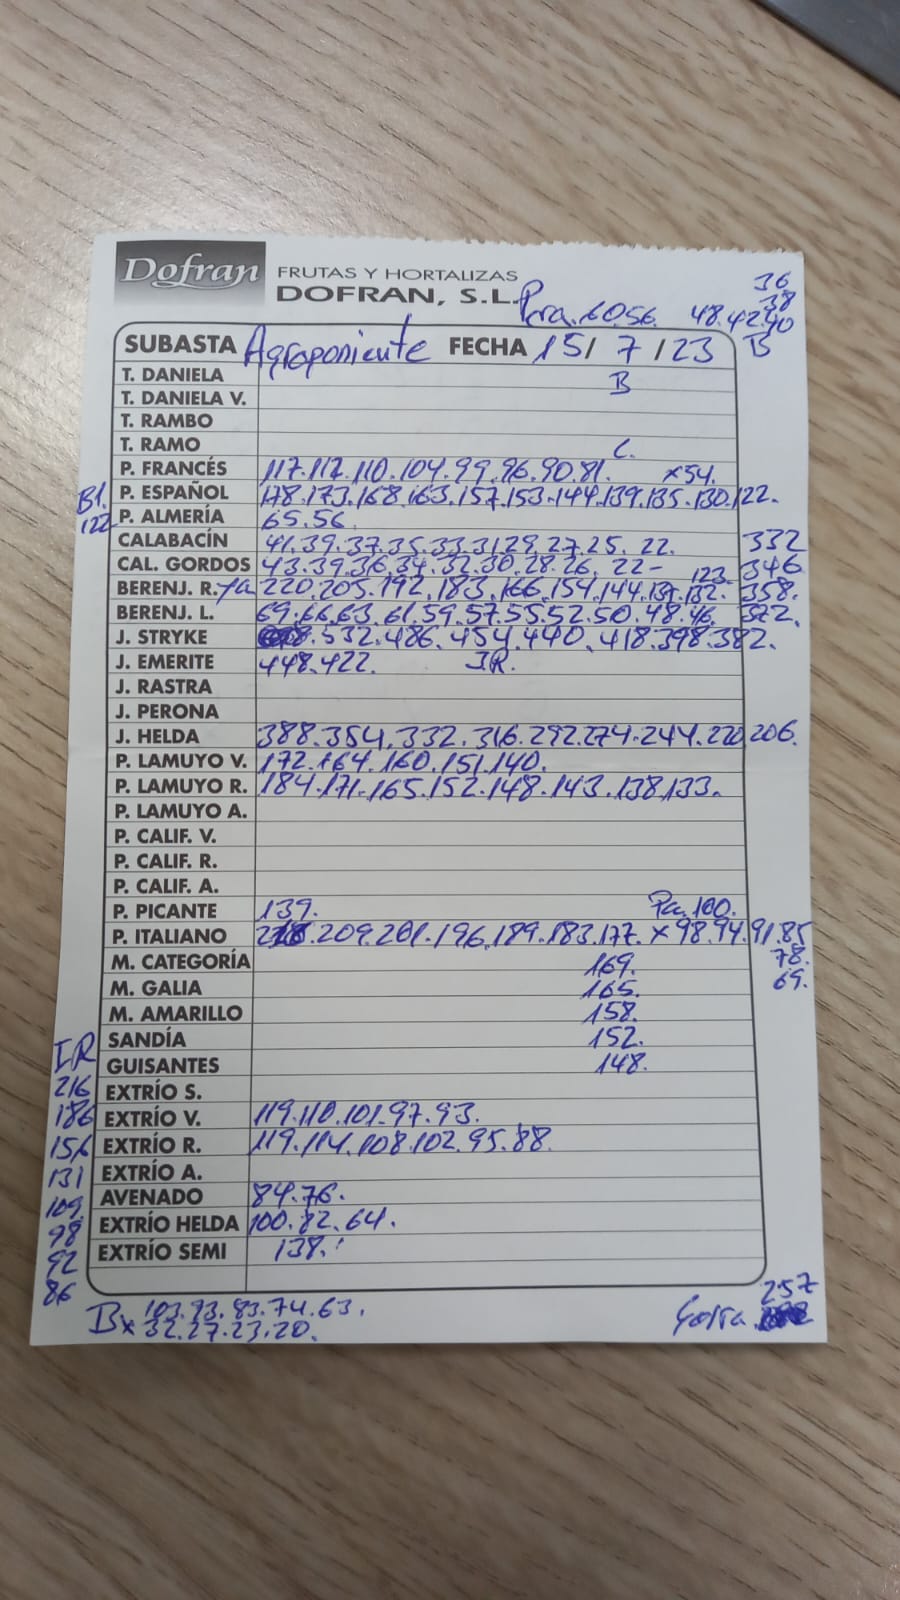 Dofran
FRUTAS Y HORTALIZAS
DOFRAN, S.L.
Pera. 60.56. 48.42.40
36
38
B
SUBASTA Agroponiente FECHA 15/ 7 /23
T. DANIELA B
T. DANIELA V.
T. RAMBO
T. RAMO C.
P. FRANCÉS 117.112.110.104.99.96.90.81. x54.
P. ESPAÑOL 178.173.168.163.157.153.144.139.135.130.122.
B1.
122
P. ALMERÍA 65.56.
CALABACÍN 41.39.37.35.33.31.29.27.25. 22. 332
CAL. GORDOS 43.39.36.34.32.30.28.26. 22- 346
BERENJ. R. 220.205.192.183.166.154.144.137.132. 123. 358.
BERENJ. L. 69.66.63.61.59.57.55.52.50.48.46. 372.
J. STRYKE 532.486.454.440.418.398.382.
J. EMERITE 448.422. I.R.
J. RASTRA
J. PERONA
J. HELDA 388.354.332.316.292.274.244.220.206.
P. LAMUYO V. 172.164.160.151.140.
P. LAMUYO R. 184.171.165.152.148.143.138.133.
P. LAMUYO A.
P. CALIF. V.
P. CALIF. R.
P. CALIF. A.
P. PICANTE 139. Pa.100.
P. ITALIANO 209.201.196.189.183.177. x98.94.91.85
M. CATEGORÍA 169. 78.
M. GALIA 165. 69.
M. AMARILLO 158.
SANDÍA 152.
GUISANTES 148.
EXTRÍO S.
EXTRÍO V. 119.110.101.97.93.
EXTRÍO R. 119.114.108.102.95.88.
EXTRÍO A.
AVENADO 84.76.
EXTRÍO HELDA 100.82.64.
EXTRÍO SEMI 138.
I.R
216
186
156
131
109.
98
92
86
B 103.93.83.74.63.
x 32.27.23.20.
257